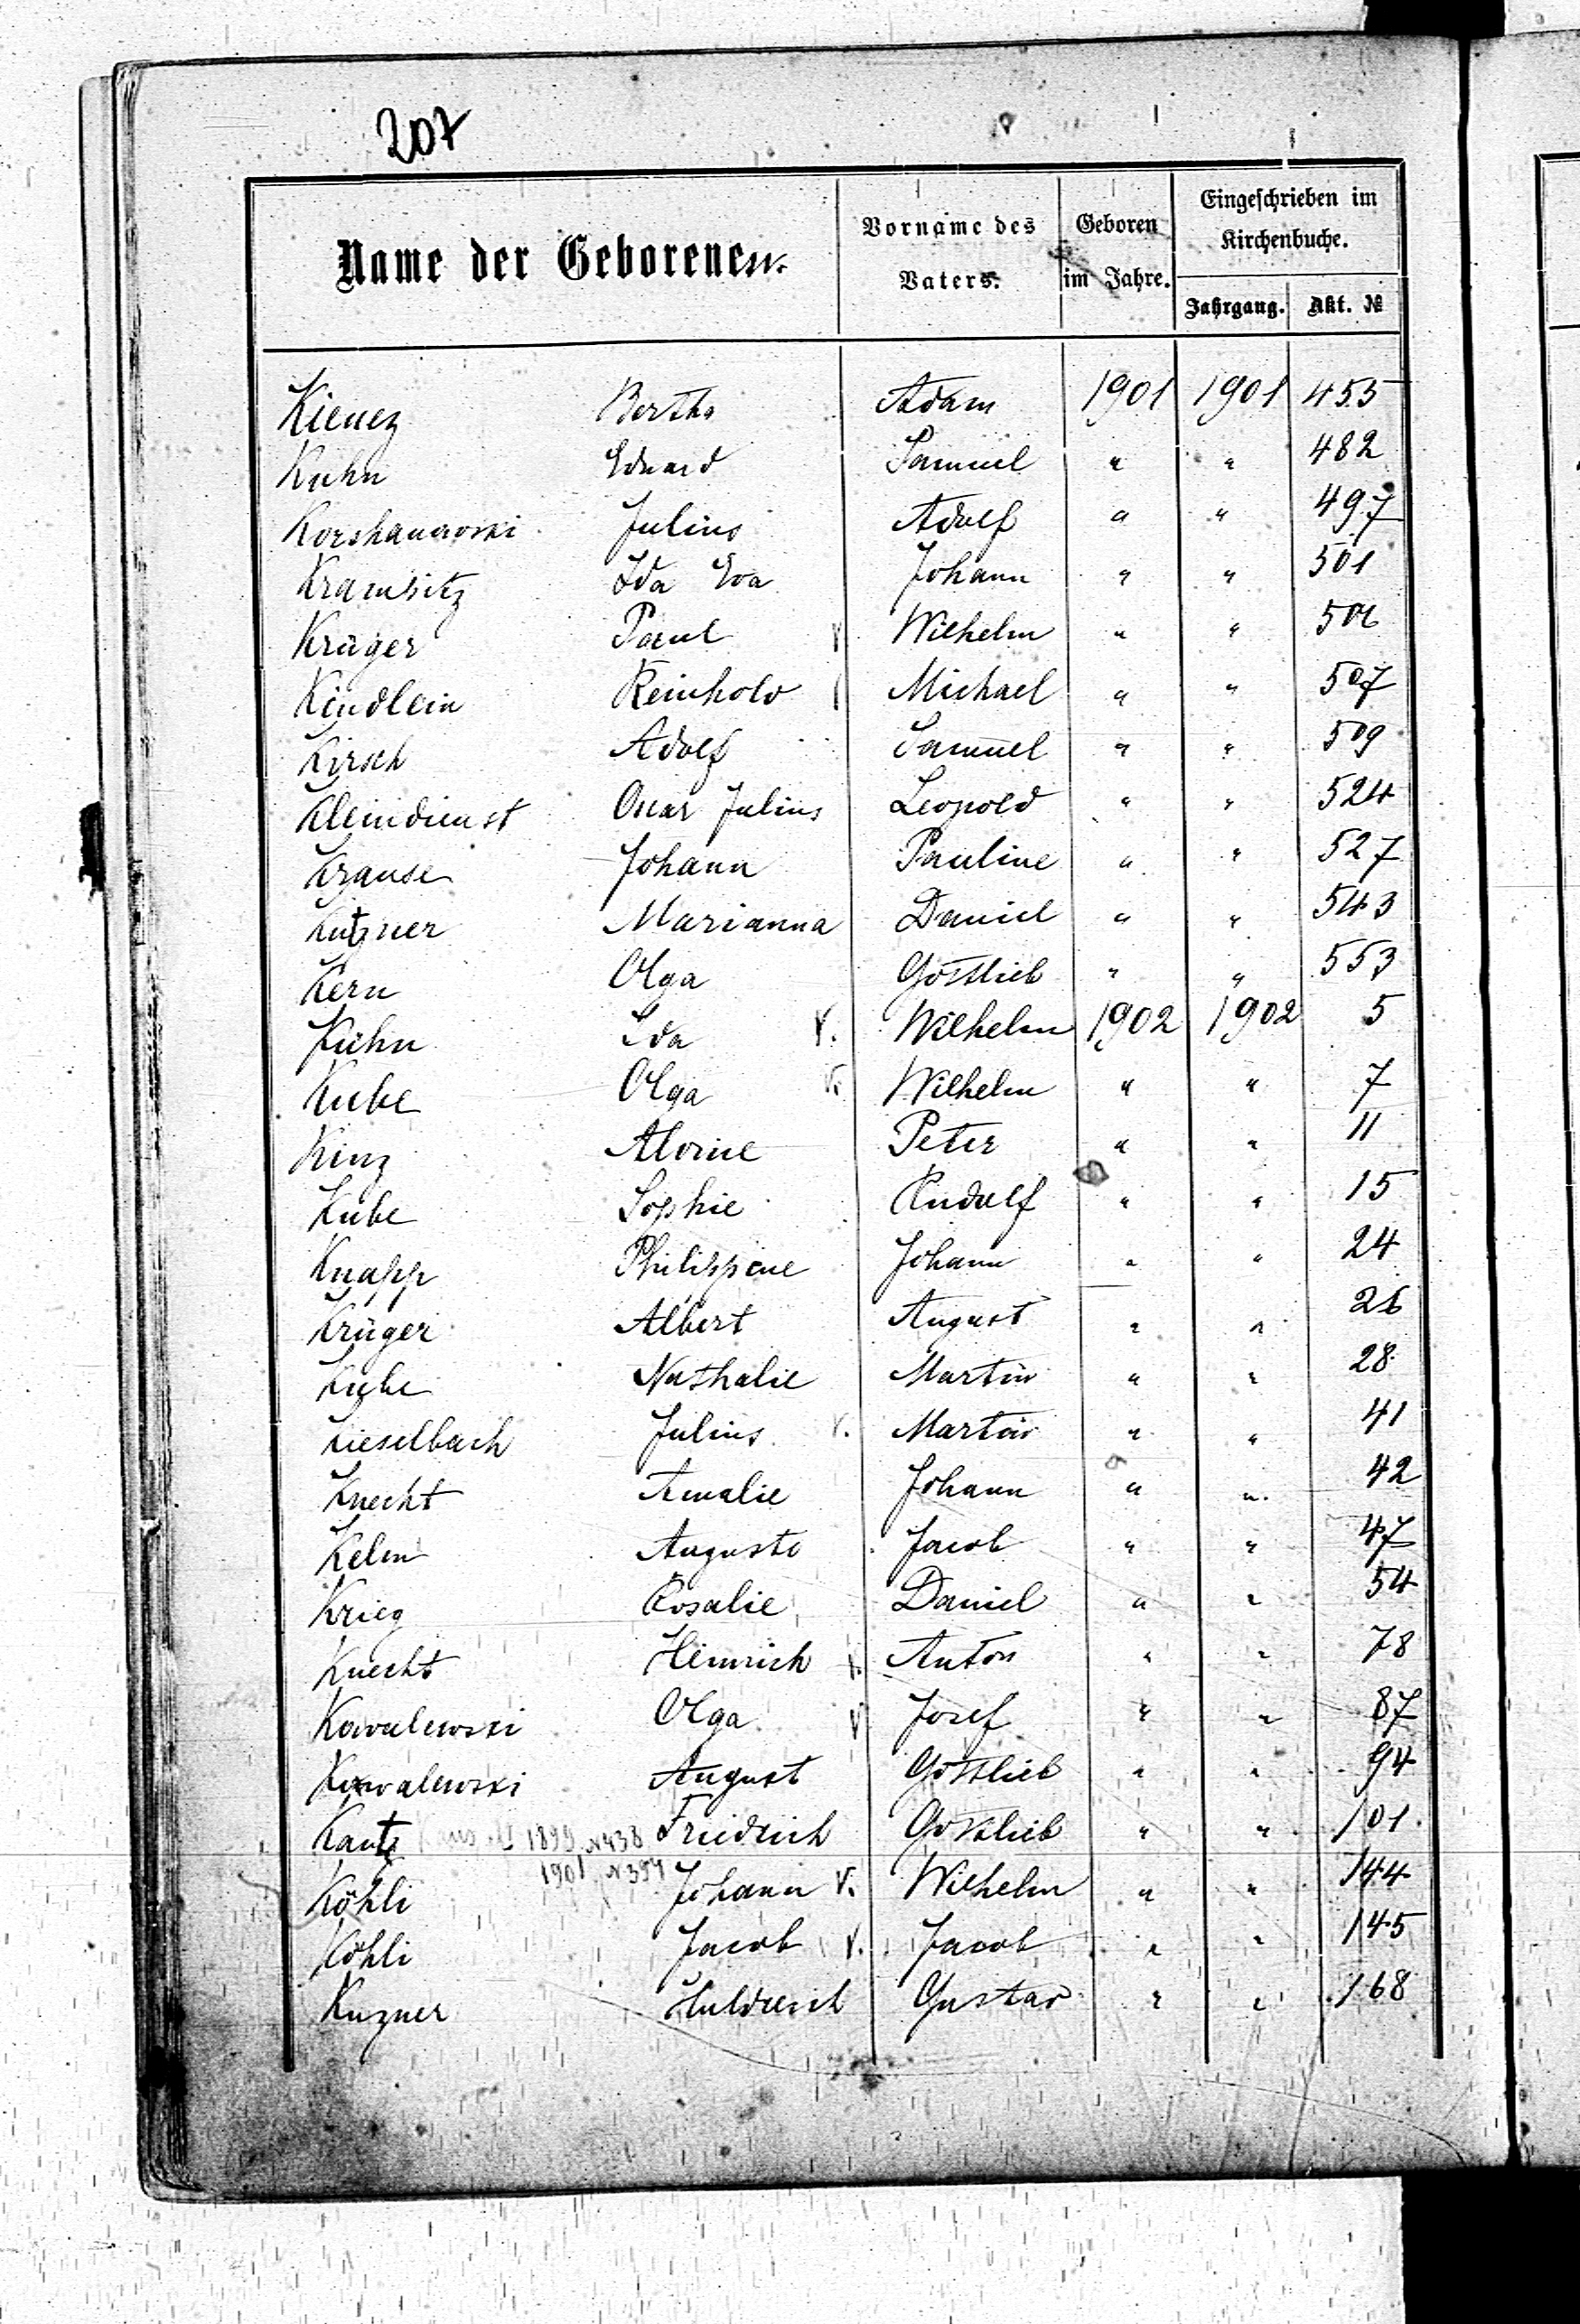 207
Name der Geborenen.
Vorname des Vaters.
Geboren im Jahre.
Eingeschrieben im Kirchenbuche.
Jahrgang. Akt. №
Kienez Bertha Adam 1901 1901 455
Kuhn Eduard Samuel " " 482
Korshanowski Julius Adolf " " 497
Kramsitz Ida Eva Johann " " 501
Krüger Paul V Wilhelm " "
Kindlein Reinhold Michael " " 507
Kirsch Adolf Samuel " " 509
Kleindienst Oscar Julius Leopold " " 524
Krause Johann Pauline " " 527
Kutzner Marianna Daniel " " 543
Kern Olga Gottlieb " " 553
Kühn Ida V. Wilhelm 1902 1902 5
Kube Olga V. Wilhelm " " 7
Kinz Alvine Peter " " 11
Kube Sophie Rudolf " " 15
Knapp Philippine Johann " " 24
Krüger Albert August " " 26
Kube Nathalie Martin " " 28
Kieselbach Julius V. Martin " " 41
Knecht Amalie Johann " " 42
Kelm Auguste Jacob " " 47
Krieg Rosalie Daniel " " 54
Knecht Heinrich V. Anton " " 78
Kowalewski Olga V Josef " " 87
Kowalewski August Gottlieb " " 94
Kautz 1899 N438 Friedrich Gottlieb " " 101.
1901 N394
Köhli Johann V. Wilhelm " " 144
Köhli Jacob V. Jacob " " 145
Kuzner Huldreich Gustav " " 168